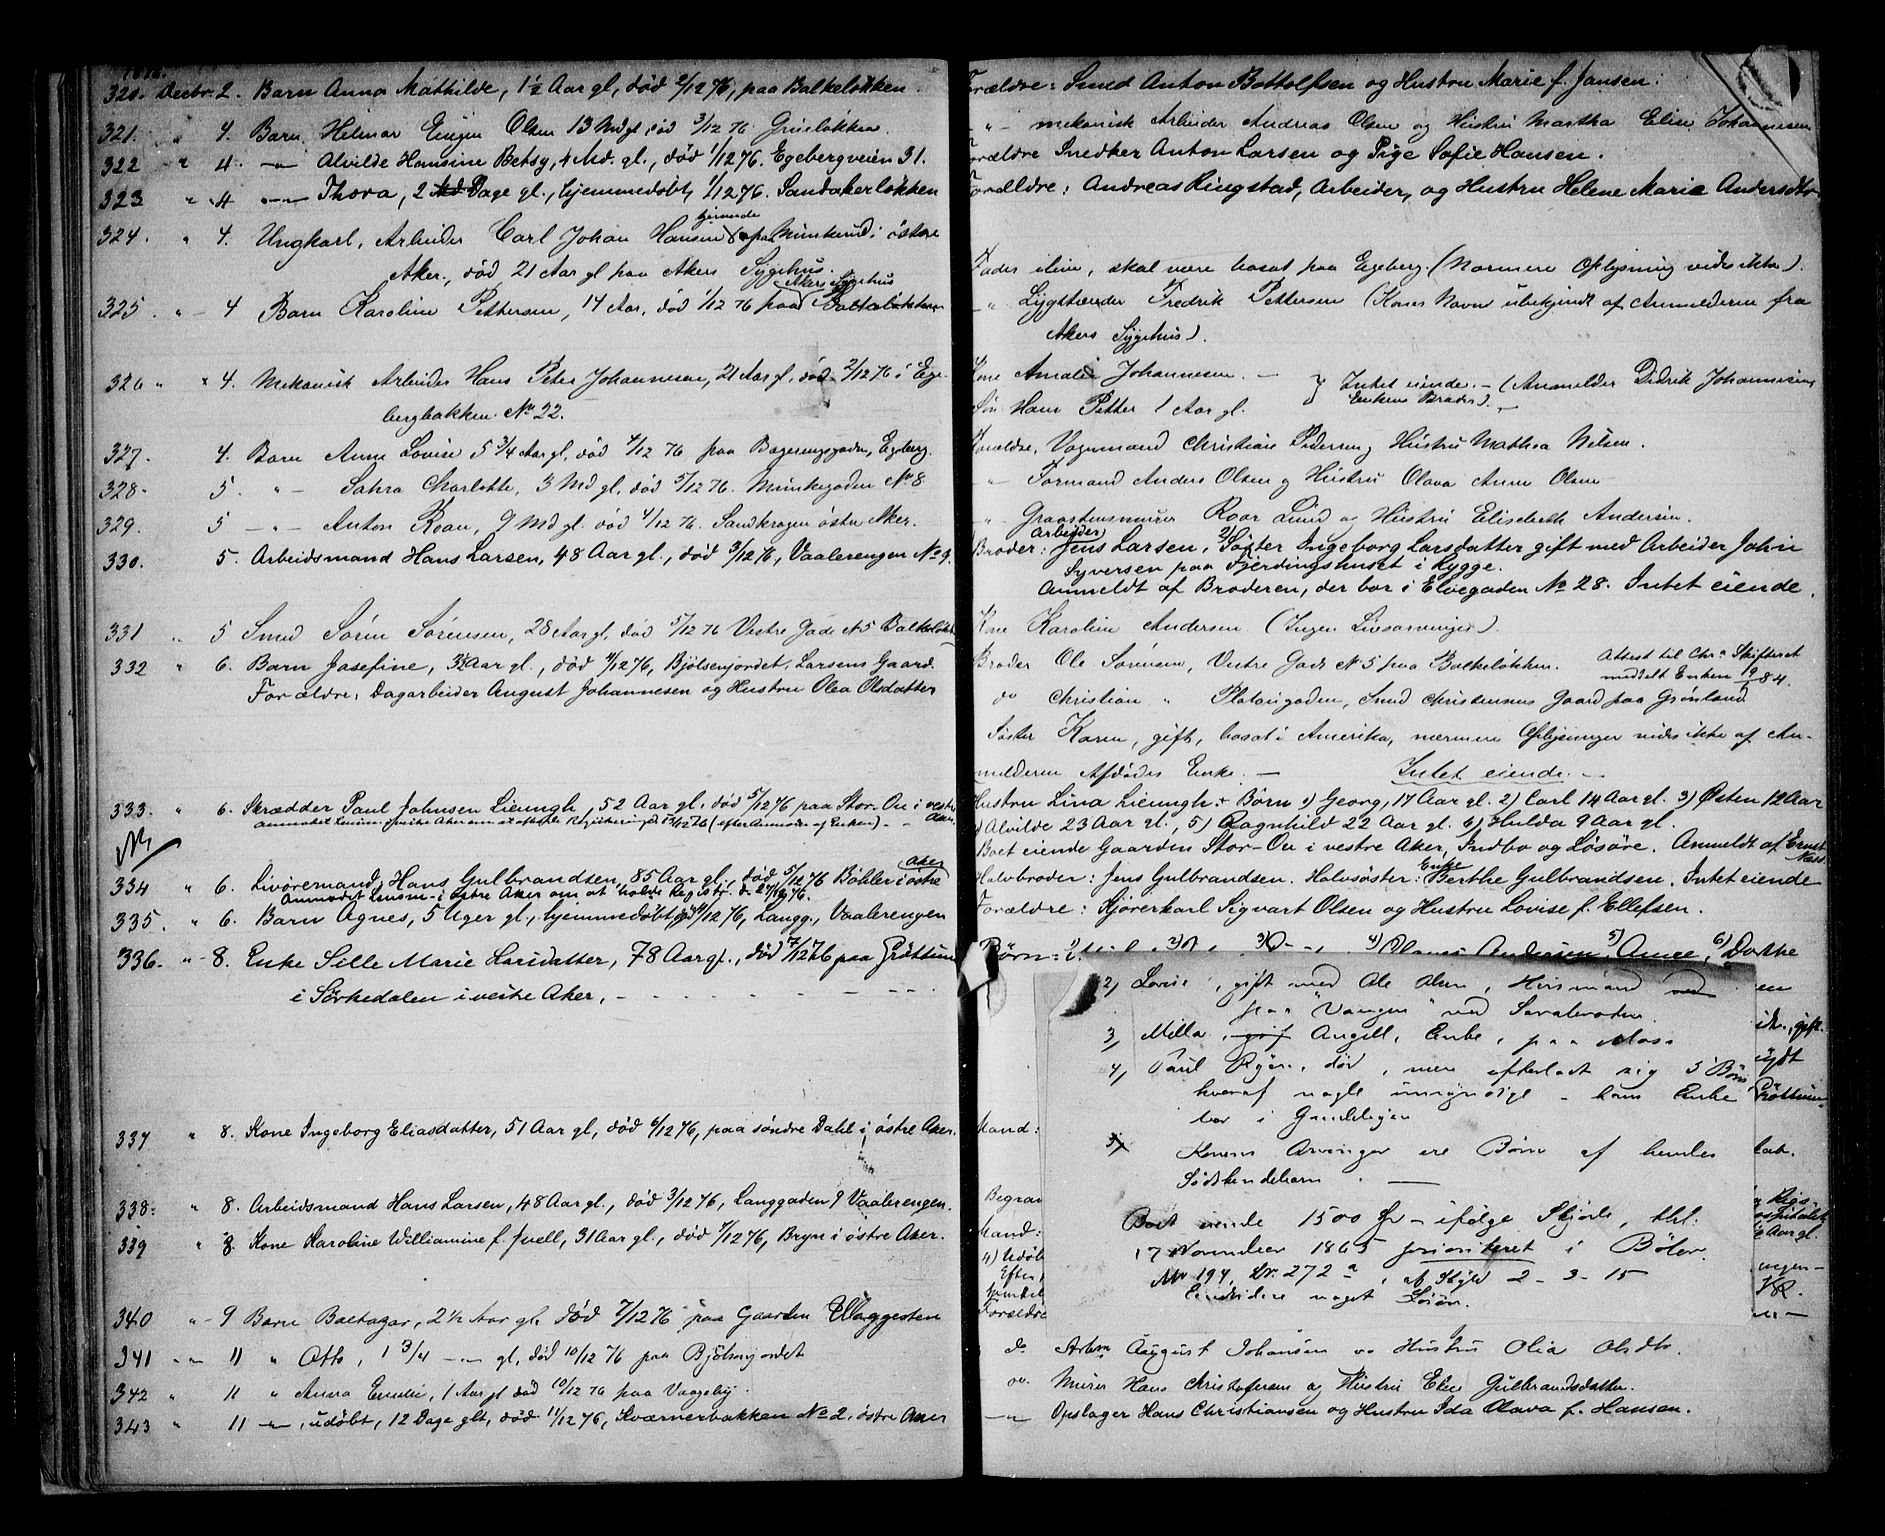 1876.
320. Decbr. 2. Barn Anna Mathilde, 1½ Aar gl, død 2/12 76, paa Balkeløkken.
321. " 4. Barn Helmar Eugen Olsen 13 Md gl, død 3/12 76 Grueløkken.
322 " 4 —"— Alvilde Hansine Betsy, 4 Md. gl., død 1/12 76. Egebergveien 31.
323 " 4 —"— Thora, 2 Dage gl., hjemmedøbt, 1/12 76. Sandakerløkken
324. " 4. Ungkarl, Arbeider Carl Johan Hansen hjemme paa Munkerud i østre
Aker., død 21 Aar gl paa Akers Sygehus.
325. " 4 Barn Karoline Pettersen, 14 Aar, død 1/12 76 paa Akers Sygehus
326 " " 4. Mekanisk Arbeider Hans Peter Johannesen, 21 Aar gl. død 2/12 76 i Ege-
bergbakken No 22.
327. 4. Barn Anne Lovise 5 3/4 Aar gl, død 4/12 76 paa Egeberg.
328. 5. " — Sahra Charlotte, 3 Md gl, død 5/12 76. Munkegaden No 8
329. 5 —"— Anton Roan, 9 Md gl. død 4/12 76. Sandkrogen østre Aker.
330. 5. Arbeidsmand Hans Larsen, 48 Aar gl., død 3/12 76, Vaalerengen No 9.
331 " 5 Smed Søren Sørensen, 28 Aar gl, død 5/12 76 Vestre Gade N 5 Balkeløkk
332 " 6. Barn Josefine, 3½ Aar gl., død 4/12 76, Bjølsenjordet. Larsens Gaard.
Forældre: Dagarbeider August Johannesen og Hustru Olea Olsdatter
333. " 6. Skrædder Paul Johnsen Lieungh, 52 Aar gl. død 5/12 76 paa Stor-Ou i vestre Aker.
334 " 6. Livøremand, Hans Gulbrandsen, 85 Aar gl., død 5/12 76 Bøhler i østre Aker
Anmodet Lensm. i Østre Aker om at holde Registr. d. 27/12 76.
335. " 6. Barn Agnes, 5 Uger gl., hjemmedøbt, 4/12 76, Langg., Vaalerengen
336. " 8. Enke Sille Marie Larsdatter, 78 Aar gl., død 7/12 76 paa Grøttum
i Sørkedalen i vestre Aker,
337 " 8. Kone Ingeborg Eliasdatter, 51 Aar gl, død 6/12 76, paa søndre Dahl i østre Aker.
338. " 8. Arbeidsmand Hans Larsen, 48 Aar gl., død 3/12 76, Langgaden 9 Vaalerengen.
339 " 8. Kone Karoline Williamine f. Juell, 31 Aar gl., død 7/12 76, Bryn i østre Aker.
340 " 9 Barn Baltazar, 2½ Aar gl. død 7/12 76 paa Gaarden Vlaggesten
341 —"— 11 " Otto, 1 3/4 —"— gl, død 10/12 76 paa Bjølsenjordet
342 " 11 " Anna Emilie, 1 Aar gl død 10/12 76 paa Vaageby.
343 " 11 —"—, udøbt, 12 Dage glt, død 11/12 76, Kværnerbakken No 2. østre Aker
Forældre: Smed Anton Bottolfsen og Hustru Marie f. Jansen.
—"— mekanisk Arbeider Andreas Olsen og Hustru Martha Elise Johannesen
Forældre Snedker Anton Larsen og Pige Sofie Hansen.
Forældre: Andreas Ringstad, Arbeider, og Hustru Helene Marie Andersdtr
Fader ilive, skal være bosat paa Egeberg. (Nærmere Oplysning vides ikke).
" Lygttænder Fredrik Pettersen (Kones Navn ubekjendt af Anmelderen fra
Akers Sygehus).
Kone Amalie Johannesen. — } Intet eiende. — (Anmelder Didrik Johannesen
Søn Hans Petter 1 Aar gl. Enkens Broder).
Forældre, Vognmand Christian Pedersen og Hustru Mathea Nilsen.
" Formand Anders Olsen og Hustru Olava Anne Olsen
—"— Graastensmurer Roar Lund og Hustru Elisebeth Andersen.
Broder: Arbeider Jens Larsen, 2) Søster Ingeborg Larsdatter gift med Arbeider Johan
Syversen paa Fjerdingshuset i Rygge.
Anmeldt af Broderen, der bor i Elvegaden No 28. Intet eiende.
Kone Karoline Andersen. (Ingen Livsarvinger).
Broder Ole Sørensen, Vestre Gade N 5 paa Balkeløkken. Attest til Chr.a Skifteret
meddelt Enken 19/ 84.
do Christian " Platougaden, Smed Christensens Gaard paa Grønland
Søster Karen, gift, bosat i Amerika, nærmere Oplysninger vides ikke af An-
melderen Afdødes Enke. — Intet eiende. —
Hustru Lina Lieungh. Børn 1) Georg, 17 Aar gl. 2) Carl 14 Aar gl. 3) Østen 12 Aar
4) Alvilde 23 Aar gl., 5) Ragnhild 22 Aar gl. 6) Hulda 9 Aar gl.
Boet eiende Gaarden Stor-Ou i vestre Aker, Indbo og Løsøre. Anmeldt af Ernst Næss.
Halvbroder: Jens Gulbrandsen. Halvsøster: Enke Berthe Gulbrandsen. Intet eiende
Forældre: Kjørerkarl Sigvart Olsen og Hustru Lovise f. Ellefsen.
Børn: 4) Andersen, 5) Anne, 6) Dorthe
2) Lovise, gift med Ole Olsen, Husmand
paa "Vangen" ved Saraebraaten.
3) Milla, Angell, Enke, paa Moss
4) Paul Ryen, død, men efterladt sig 5 Børn
hvoraf nogle umyndige – hans Enke
bor i Gamlebyen
5) Konens Arvinger ere Børn af hendes
Sødskendebarn. —
Boet eiende 1500 Spd – ifølge Skjøde, thl:
17 November 1865 prioriteret i Bøler
M No 194, Lr. 272 a, af Skyld 2 – 3 – 15
Endvidere noget Løsøre.
Mand:
Begrav
Mand:
4) Udøb
Forældre
do Arbm August Johansen og Hustru Olia Olsdtr.
do. Murer Hans Christofersen og Hustru Elise Gulbrandsdatter.
—"— Opslager Hans Christiansen og Hustru Ida Olava f. Hansen.